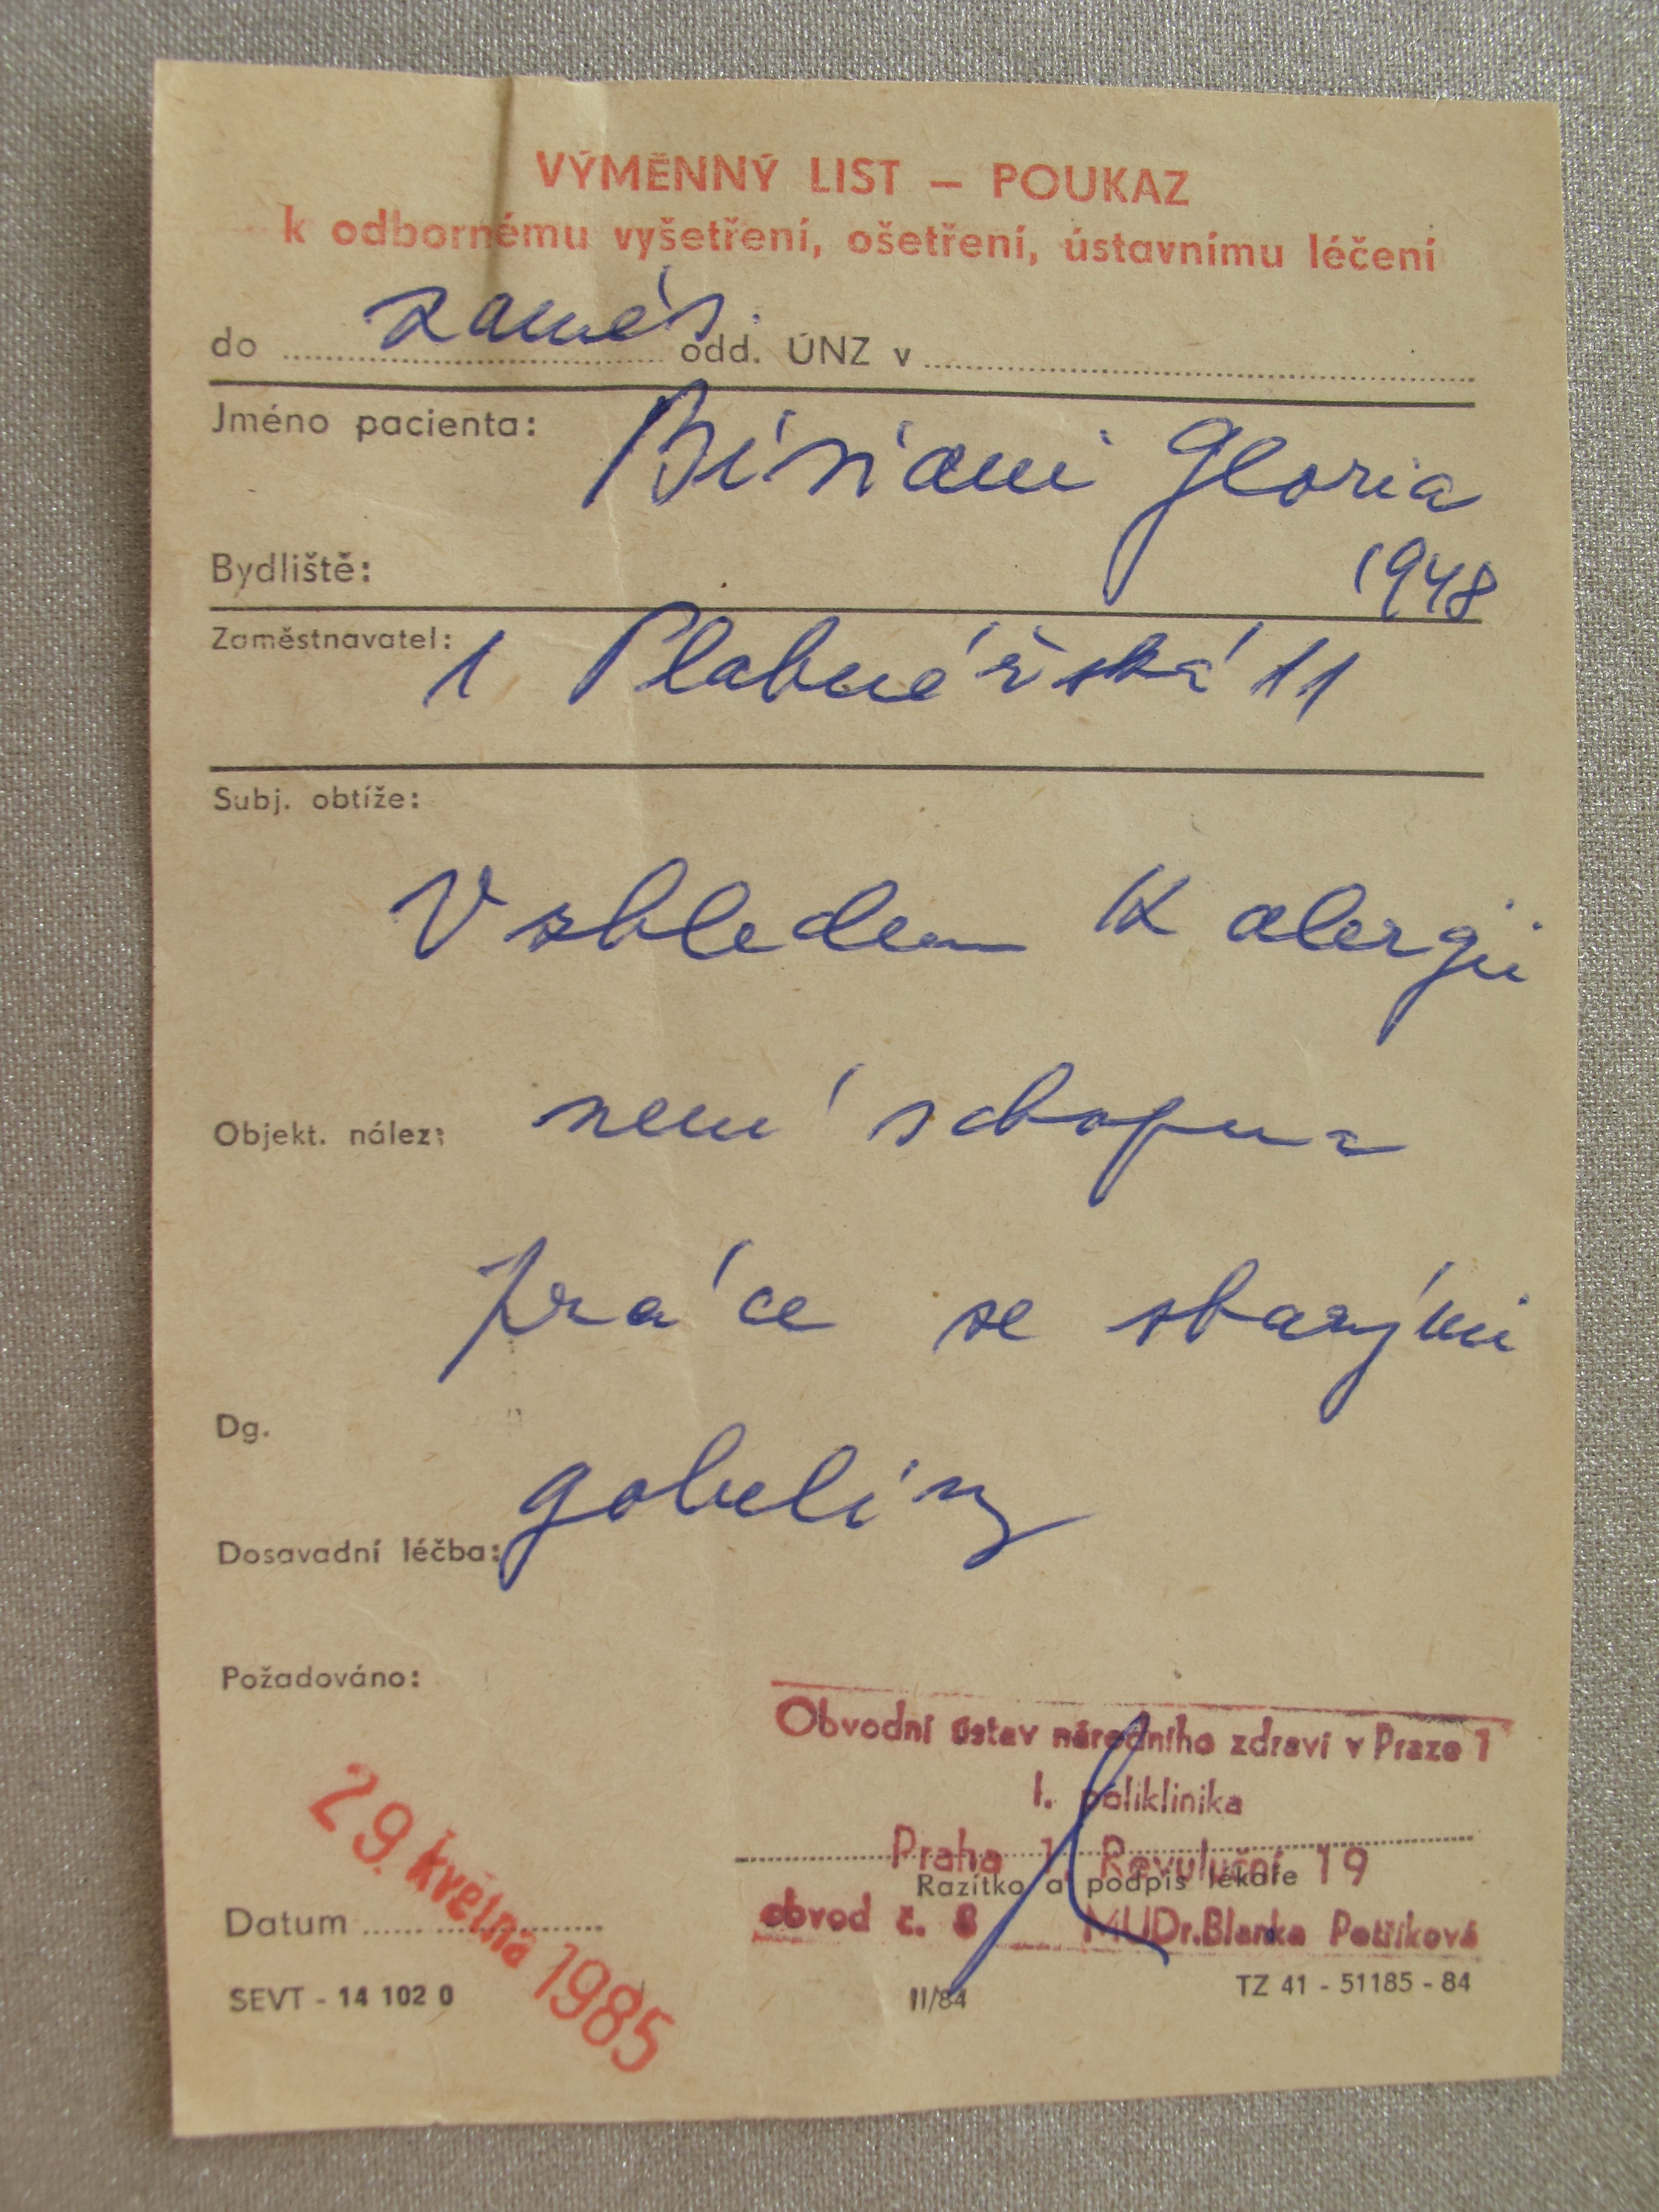 VÝMĚNNÝ LIST – POUKAZ
k odbornému vyšetření, ošetření, ústavnímu léčení
do zaměs. odd. ÚNZ v
Jméno pacienta: Bisiani Gloria
Bydliště: 1948
Zaměstnavatel: 1 11
Subj. obtíže:
Vzhledem k alergii
Objekt. nález: není schopna
práce se starými
Dg.
gobelíny
Dosavadní léčba:
Požadováno:
Obvodní ústav národního zdraví v Praze 1
I. poliklinika
Praha 1, Revoluční 19
Razítko a podpis lékaře
obvod č. 8 MUDr. Blanka
Datum 29. května 1985
SEVT - 14 102 0 II/84 TZ 41 - 51185 - 84